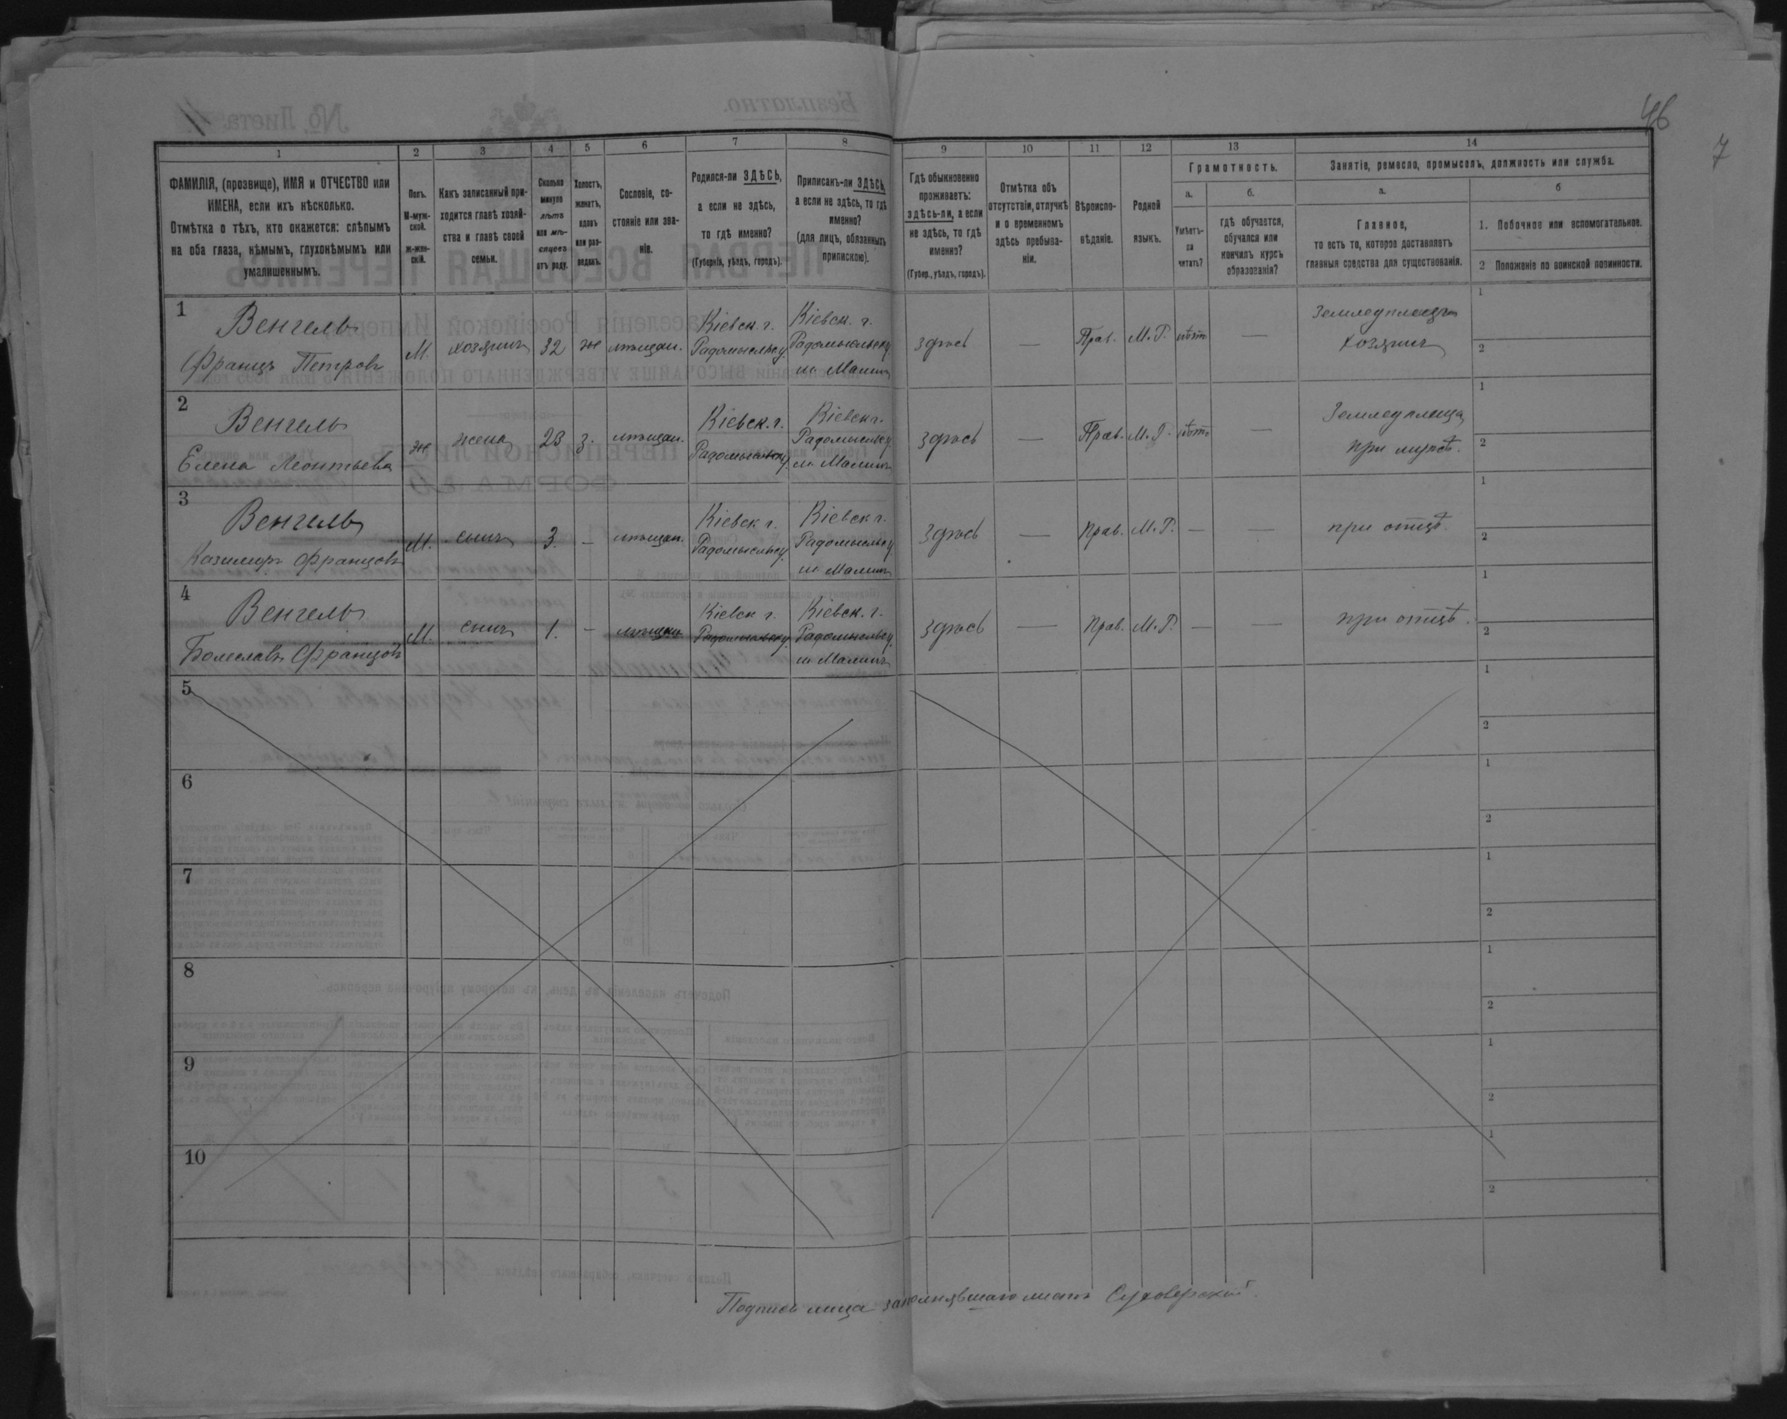 46
7
1 2 3 4 5 6 7 8 9 10 11 12 13 14
ФАМИЛІЯ, (прозвище), ИМЯ и ОТЧЕСТВО или
ИМЕНА, если ихъ нѣсколько.
Отмѣтка о тѣхъ, кто окажется: слѣпымъ
на оба глаза, нѣмымъ, глухонѣмымъ или
умалишеннымъ.
Полъ.
М-муж-
ской.
ж-жен-
скій.
Какъ записанный при-
ходится главѣ хозяй-
ства и главѣ своей
семьи.
Сколько
минуло
лѣтъ
или мѣ-
сяцевъ
отъ роду.
Холостъ,
женатъ,
вдовъ
или раз-
веденъ.
Сословіе, со-
стояніе или зва-
ніе.
Родился-ли ЗДѢСЬ,
а если не здѣсь,
то гдѣ именно?
(Губернія, уѣздъ, городъ).
Приписанъ-ли ЗДѢСЬ,
а если не здѣсь, то гдѣ
именно?
(для лицъ, обязанныхъ
припискою).
Гдѣ обыкновенно
проживаетъ:
здѣсь-ли, а если
не здѣсь, то гдѣ
именно?
(Губер., уѣздъ, городъ).
Отмѣтка объ
отсутствіи, отлучкѣ
и о временномъ
здѣсь пребыва-
ніи.
Вѣроиспо-
вѣданіе.
Родной
языкъ.
Грамотность.
а.
Умѣетъ-
ли
читать?
б.
гдѣ обучается,
обучался или
кончилъ курсъ
образованія?
Занятіе, ремесло, промыселъ, должность или служба.
а.
Главное,
то есть то, которое доставляетъ
главныя средства для существованія.
б
1. Побочное или вспомогательное.
2 Положеніе по воинской повинности.
1
Венгель Кіевск. г. Кіевск. г. Земледѣлецъ 1
М. хозяинъ 32 же мѣщан. Радомысльск у. Радомысльск у. здѣсь — Прав. М.Р. нѣтъ — хозяинъ 2
Францъ Петровъ м Малинъ
2
Венгель Кіевск. г. Кіевск г. 1
же жена 23 з. мѣщан. Радомысльск у. Радомысльск у. здѣсь — Прав. М.Р. нѣтъ — при мужѣ. 2
Елена Леонтьева м Малинъ
3
Венгель Кіевск г. Кіевск г. 1
М. сынъ 3. — мѣщан. Радомысльск у. Радомысльск у. здѣсь — Прав. М.Р. — — при отцѣ. 2
Казимиръ Францовъ м Малинъ
4
Венгель Кіевск г. Кіевск. г. 1
М. сынъ 1. — мѣщан. Радомысльск у. Радомысльск у. здѣсь — Прав. М.Р. — — при отцѣ. 2
Болеславъ Францовъ м Малинъ
5 1
2
6 1
2
7 1
2
8 1
2
9 1
2
10 1
2
Подпись лица заполнявшаго листъ Суховерскій.